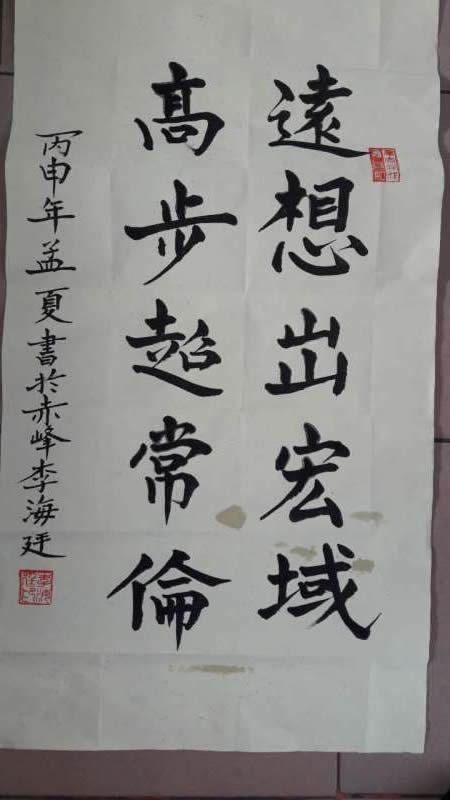 遠想出宏域
髙步超常倫
丙申年孟夏書於赤峰李海廷